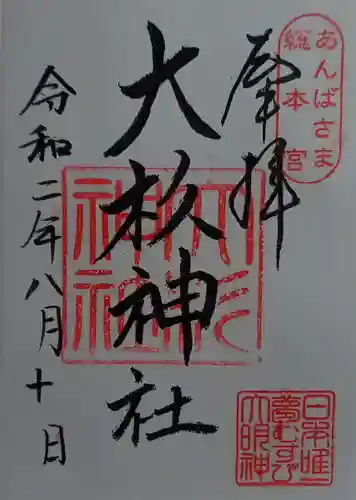 あんばさま
総本宮
奉拝
大杉神社
大杉神社
令和二年八月十日
日本唯一
夢むすび
大明神